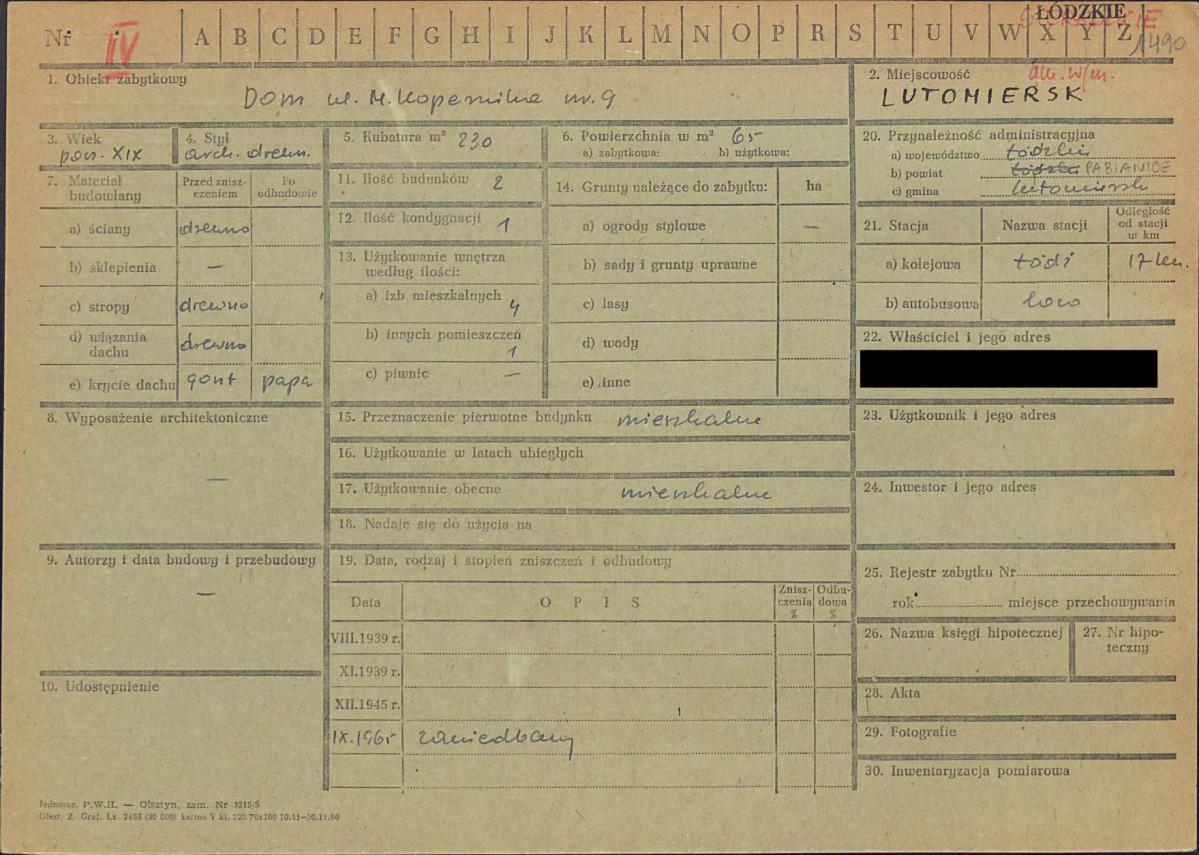 Nr IV A B C D E F G H I J K L M N O P R S T U V W X Y Z ŁÓDZKIE
1490
1. Obiekt zabytkowy
Dom ul. M. Kopernika nr. 9
2. Miejscowość
LUTOMIERSK
3. Wiek
poł. XIX
4. Styl
arch. drewn.
5. Kubatura m³ 230
6. Powierzchnia w m² 65
a) zabytkowa: b) użytkowa:
20. Przynależność administracyjna
a) województwo Łódzkie
b) powiat Łódzki PABIANICE
c) gmina Lutomiersk
7. Materiał budowlany
Przed zniszczeniem
Po odbudowie
a) ściany drewno
b) sklepienia —
c) stropy drewno
d) wiązania dachu drewno
e) krycie dachu gont papa
11. Ilość budynków 2
12. Ilość kondygnacji 1
13. Użytkowanie wnętrza według ilości:
a) izb mieszkalnych 4
b) innych pomieszczeń 1
c) piwnic —
14. Grunty należące do zabytku: ha
a) ogrody stylowe —
b) sady i grunty uprawne
c) lasy
d) wody
e) inne
21. Stacja Nazwa stacji Odległość od stacji w km
a) kolejowa Łódź 17 km.
b) autobusowa loco
22. Właściciel i jego adres
8. Wyposażenie architektoniczne
—
15. Przeznaczenie pierwotne budynku mieszkalne
16. Użytkowanie w latach ubiegłych
17. Użytkowanie obecne mieszkalne
18. Nadaje się do użycia na
23. Użytkownik i jego adres
24. Inwestor i jego adres
9. Autorzy i data budowy i przebudowy
—
10. Udostępnienie
19. Data, rodzaj i stopień zniszczeń i odbudowy
Data O P I S Zniszczenia % Odbudowa %
VIII.1939 r.
XI.1939 r.
XII.1945 r.
IX.1965 zaniedbany
25. Rejestr zabytku Nr
rok miejsce przechowywania
26. Nazwa księgi hipotecznej
27. Nr hipoteczny
28. Akta
29. Fotografie
30. Inwentaryzacja pomiarowa
Jednoraz. P.W.H. — Olsztyn, zam. Nr 3215/S
Olszt. Z. Graf. Lz. 2485 (20 000) karton V kl. 220 70x100 10.11—30.11.60